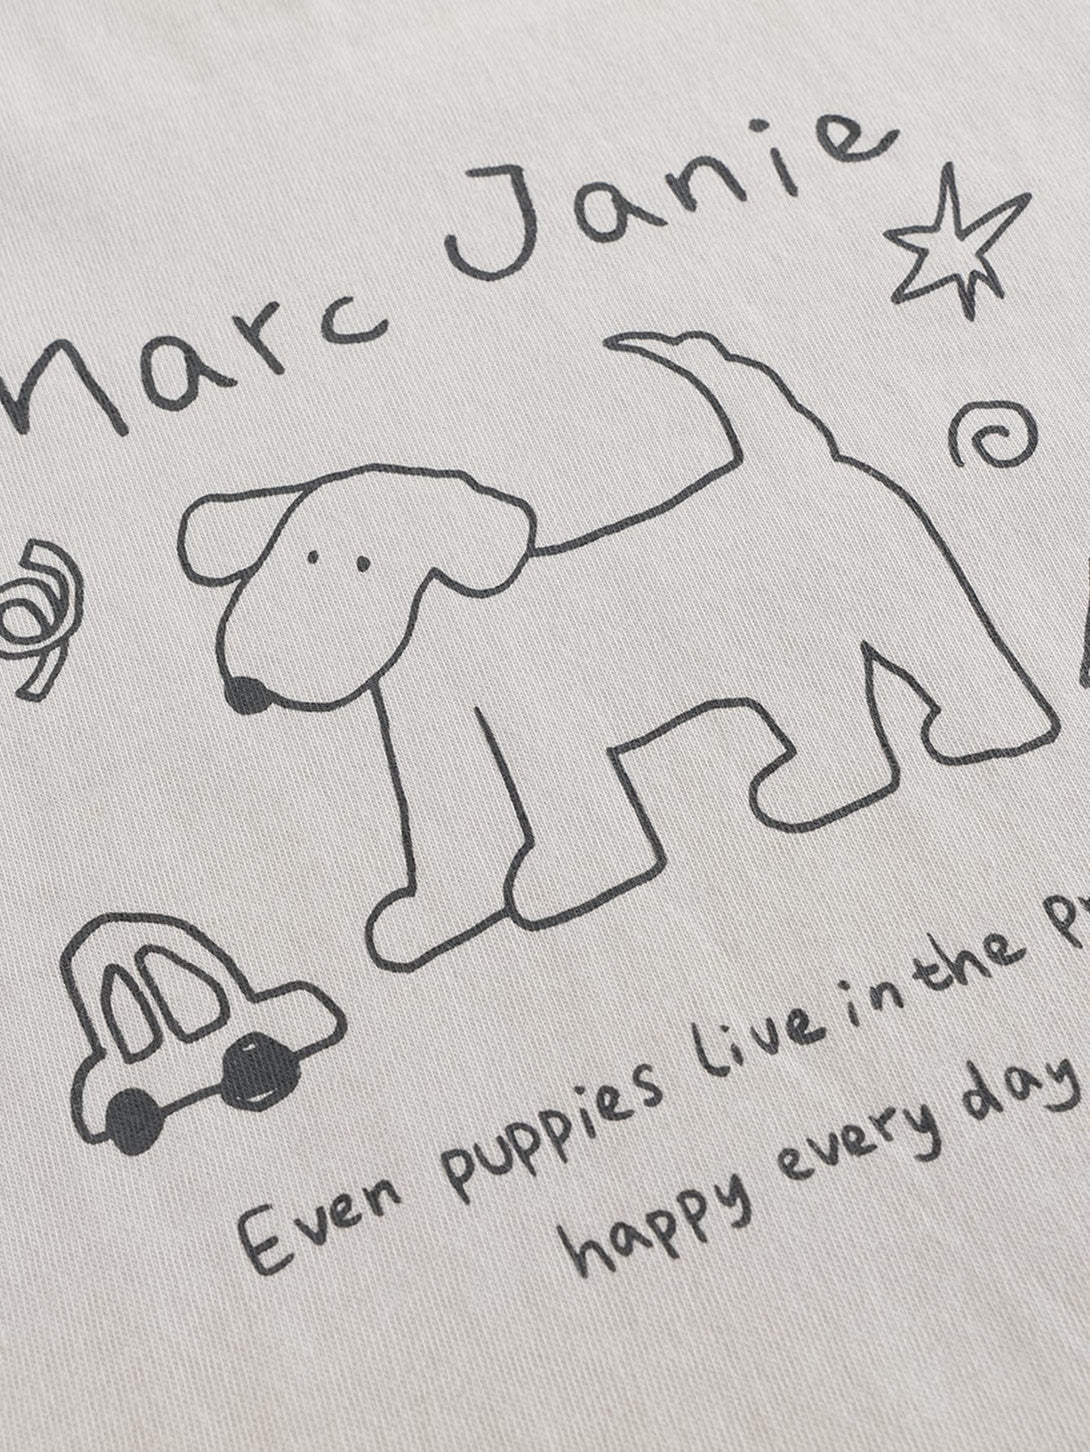 Marc Janie
Even puppies live in the
happy every day